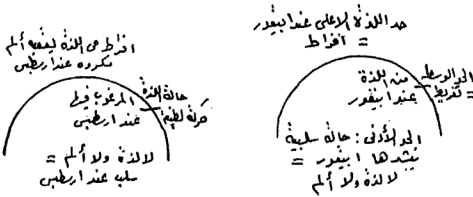 حد اللذة الأعلى عند ابيقور
= افراط
الحد الوسط
= تفريط
من اللذة
عند ابيقور
الحد الأدنى: حالة سلبية
ينشدها ابيقور =
لا لذة ولا ألم
افراط في اللذة يعقبه ألم
مكروه عند ارسطبس
حالة اللذة
حركة لطيفة
المرغوب فيها
عند ارسطبس
لا لذة ولا ألم =
سلب عند ارسطبس